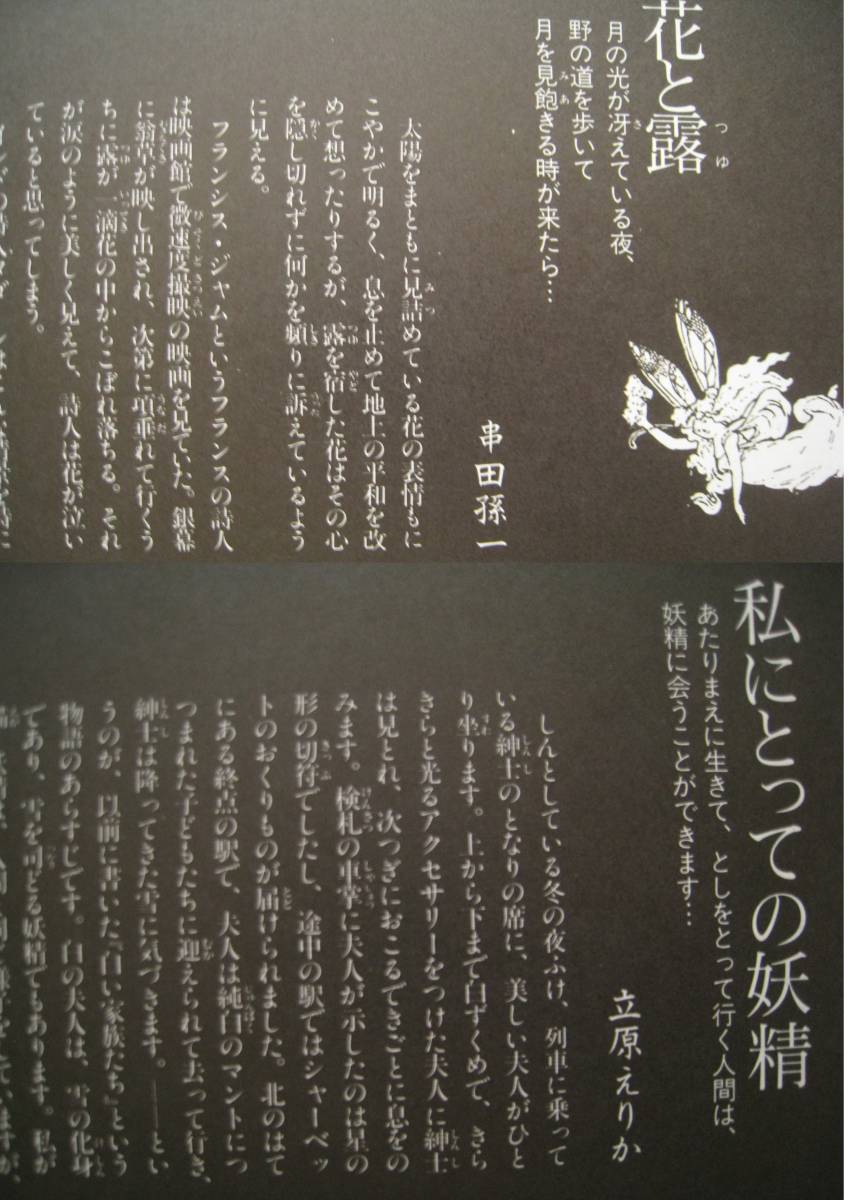 花と露
つゆ
月の光が冴えている夜、
さ
野の道を歩いて
月を見飽きる時が来たら…
みあ
串田孫一
太陽をまともに見詰めている花の表情もに
みつ
こやかで明るく、息を止めて地上の平和を改
めて想ったりするが、露を宿した花はその心
つゆ やど
を隠し切れずに何かを頻りに訴えているよう
かく しき うった
に見える。
フランシス・ジャムというフランスの詩人
は映画館で微速度撮映の映画を見ていた。銀幕
びそくどさつえい
に翁草が映し出され、次第に項垂れて行くう
おきなぐさ うなだ
ちに露が一滴花の中からこぼれ落ちる。それ
つゆ いってき
が涙のように美しく見えて、詩人は花が泣い
ていると思ってしまう。
私にとっての妖精
あたりまえに生きて、としをとって行く人間は、
妖精に会うことができます…
立原えりか
しんとしている冬の夜ふけ、列車に乗って
いる紳士のとなりの席に、美しい夫人がひと
しんし
り坐ります。上から下まで白ずくめで、きら
すわ
きらと光るアクセサリーをつけた夫人に紳士
しんし
は見とれ、次つぎにおこるできごとに息をの
みます。検札の車掌に夫人が示したのは星の
けんさつ しゃしょう
形の切符でしたし、途中の駅ではシャーベッ
きっぷ
トのおくりものが届けられました。北のはて
とど
にある終点の駅で、夫人は純白のマントにつ
じゅんぱく
つまれた子どもたちに迎えられて去って行き、
むか
紳士は降ってきた雪に気づきます。――とい
しんし
うのが、以前に書いた『白い家族たち』という
物語のあらすじです。白の夫人は、雪の化身
けしん
であり、雪を司どる妖精でもあります。私が